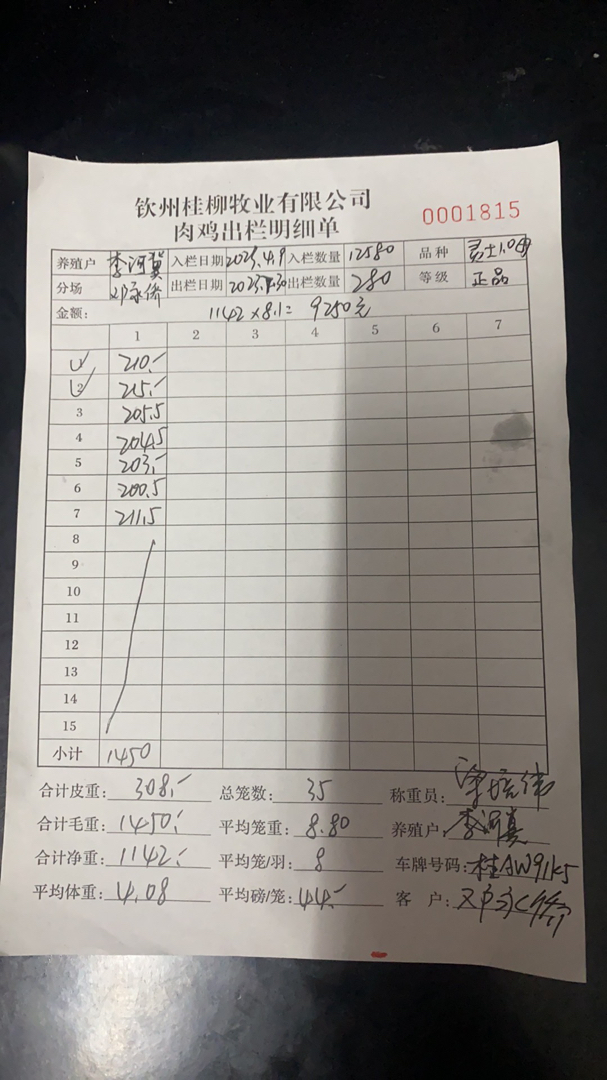 钦州桂柳牧业有限公司
肉鸡出栏明细单
0001815
养殖户 李河冀 入栏日期 2023.4.9 入栏数量 12580 品种
分场 邓永侨 出栏日期 2023.7.30 出栏数量 280 等级 正品
金额: 1142×8.1= 9250元
1 2 3 4 5 6 7
1 210.-
2 215.-
3 205.5
4 204.5
5 203.-
6 200.5
7 211.5
8
9
10
11
12
13
14
15
小计 1450
合计皮重: 308.- 总笼数: 35 称重员:
合计毛重: 1450.- 平均笼重: 8.80 养殖户: 李河冀
合计净重: 1142.- 平均笼/羽: 8 车牌号码: 桂AW91K5
平均体重: 4.08 平均磅/笼: 44.- 客户: 邓永侨